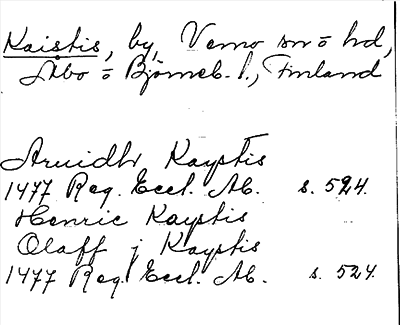 Kaistis, by, Vemo sn o hd,
Åbo o Björneb. l., Finland
Arvidh Kaystis
1477 Reg. Eccl. Ab. s. 524.
Henric Kaystis
Olaff j Kaystis
1477 Reg. Eccl. Ab. s. 524.